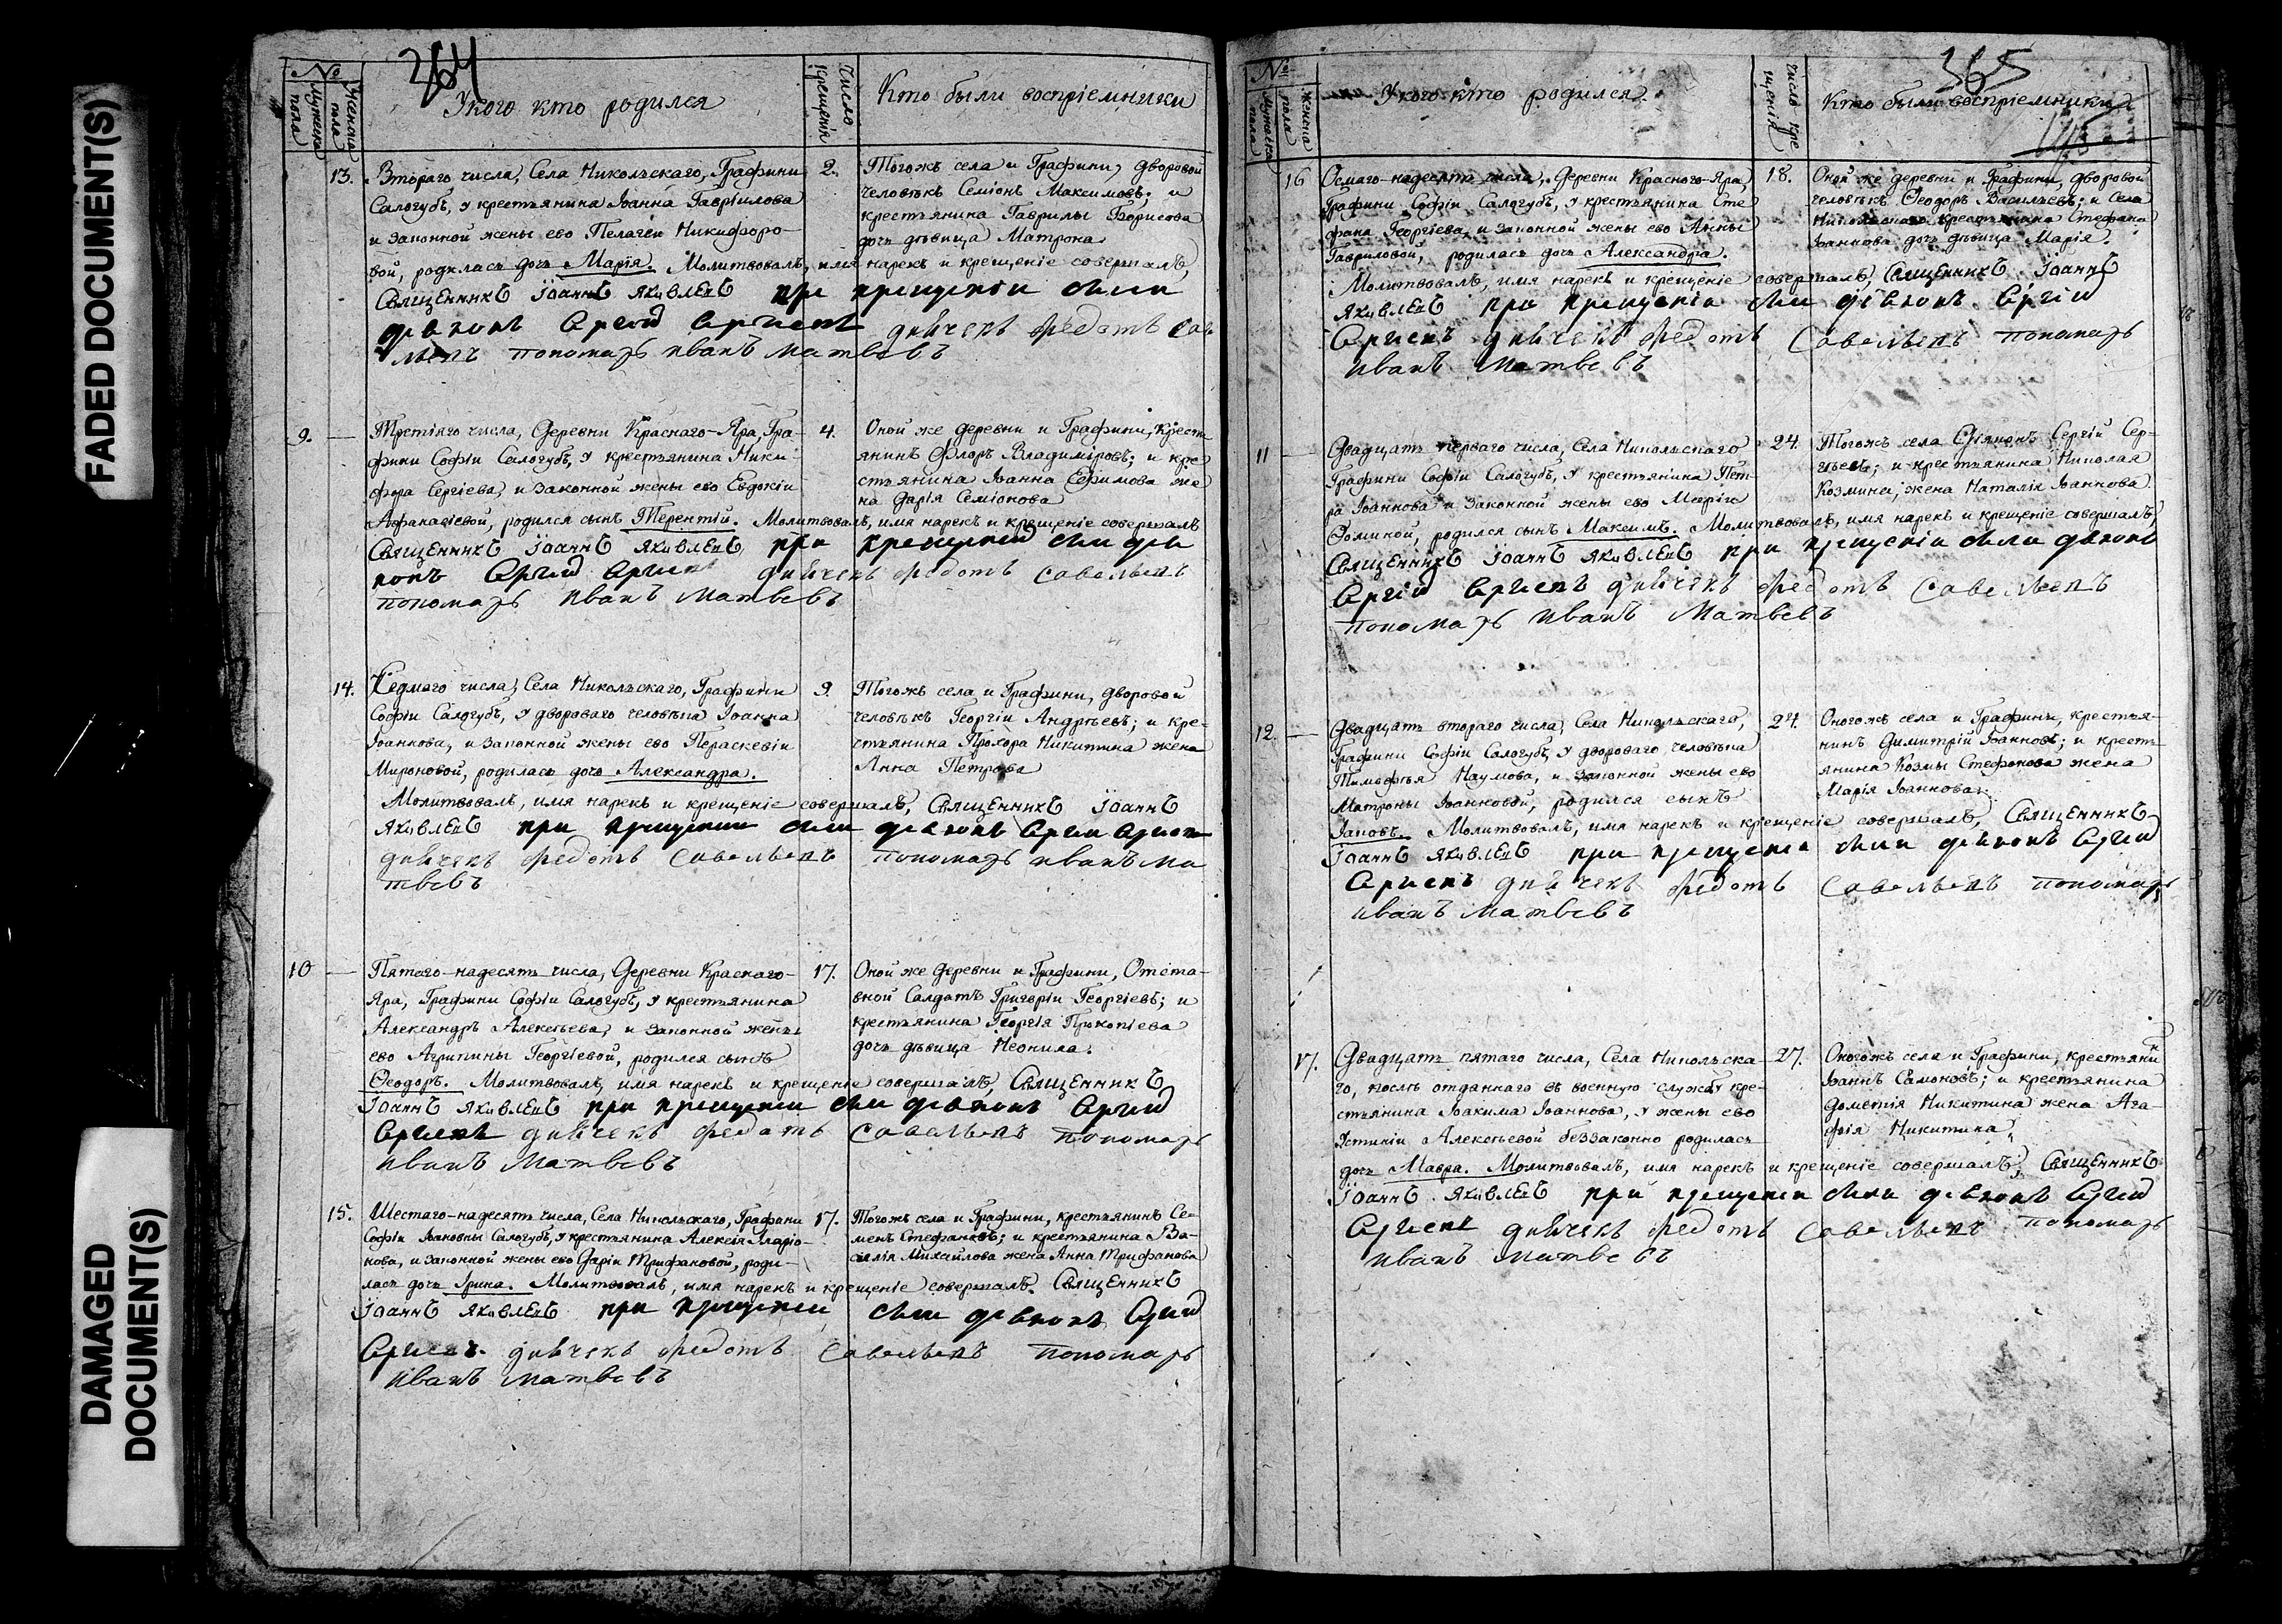 FADED DOCUMENT(S)
DAMAGED
DOCUMENT(S)
364
№
Мужеска пола
Женска пола
У кого кто родился
Число крещенія
Кто были воспріемники
13.
Втораго числа, Села Никольскаго, Графини
Салогубъ, у крестьянина Іоанна Гавріилова
и законной жены ево Пелагеи Никифоро-
вой, родилась дочь Марія. Молитвовалъ, имя нарекъ и крещеніе совершалъ,
2.
Тогожъ села и Графини, дворовой
человѣкъ Семіонъ Максимовъ; и
крестьянина Гаврилы Борисова
дочь дѣвица Матрона
Священникъ Іоаннъ Яковлевъ при крещеніи были
діаконъ Сергій Сергіевъ дьячекъ Федотъ Саве
льевъ пономарь Иванъ Матвевъ
9.
Третіяго числа, Деревни Краснаго-Яра, Гра-
фини Софіи Салогубъ, у крестьянина Ники-
фора Сергіева, и законной жены ево Евдокіи
Афанасіевой, родился сынъ Терентій. Молитвовалъ, имя нарекъ и крещеніе совершалъ
4.
Оной же деревни и Графини, крест
янинъ Флоръ Владиміровъ; и кре
стьянина Іоанна Ефимова же
на Дарія Семіонова
Священникъ Іоаннъ Яковлевъ при крещеніи были діа
конъ Сергій Сергіевъ дьячекъ Федотъ Савельевъ
пономарь Иванъ Матвевъ
14.
Седмаго числа, Села Никольскаго, Графини
Софіи Салогубъ, у двороваго человѣка Іоанна
Іоаннова, и законной жены ево Пераскевіи
Мироновой, родилась дочь Александра.
9.
Тогожъ села и Графини, дворовой
человѣкъ Георгіи Андрѣевъ; и кре-
стьянина Прохора Никитина жена
Анна Петрова
Молитвовалъ, имя нарекъ и крещеніе совершалъ, Священникъ Іоаннъ
Яковлевъ при крещеніи были діаконъ Сергій Сергіевъ
дьячекъ Федотъ Савельевъ пономарь Иванъ Ма
твевъ
10
Пятаго-надесять числа, Деревни Краснаго-
Яра, Графини Софіи Салогубъ, у крестьянина
Александръ Алексѣева, и законной жены
ево Агрипины Георгіевой, родился сынъ
Ѳеодоръ. Молитвовалъ, имя нарекъ и крещеніе совершалъ, Священникъ
17.
Оной же деревни и Графини, Отста-
вной Салдатъ Григоріи Георгіевъ; и
крестьянина Георгія Прокопіева
дочь дѣвица Неонила.
Іоаннъ Яковлевъ при крещеніи были діаконъ Сергій
Сергіевъ дьячекъ Федотъ Савельевъ пономарь
Иванъ Матвевъ
15.
Шестаго-надесять числа, Села Никольскаго, Графини
Софіи Іоанновны Салогубъ, у крестьянина Алексія Иларіо-
нова, и законной жены ево Даріи Трифановой, роди-
лась дочь Ирина. Молитвовалъ, имя нарекъ и крещеніе совершалъ. Священникъ
17.
Тогожъ села и Графини, крестьянинъ Се-
менъ Стефановъ; и крестьянина Ва-
силія Михаилова жена Анна Трифанова
Іоаннъ Яковлевъ при крещеніи были діаконъ Сергій
Сергіевъ дьячекъ Федотъ Савельевъ пономарь
Иванъ Матвевъ
365
№
Мужеска пола
Женска пола
У кого кто родился
Число крещенія
Кто были воспріемники
16
Осмаго-надесять числа, Деревни Краснаго-Яра,
Графини Софіи Салогубъ, у крестьянина Сте
фана Георгіева, и законной жены ево Анны
Гавриловой, родилась дочь Александра.
18.
Оной же деревни и Графини, дворовой
человѣкъ Ѳеодоръ Васильевъ; и села
Никольскаго крестьянина Стефана
Іоаннова дочь дѣвица Марія.
Молитвовалъ, имя нарекъ и крещеніе совершалъ, Священникъ Іоаннъ
Яковлевъ при крещеніи были діаконъ Сергій
Сергіевъ дьячекъ Федотъ Савельевъ пономарь
Иванъ Матвевъ
11
Двадцать перваго числа, Села Никольскаго
Графини Софіи Салогубъ, у крестьянина Пет-
ра Іоаннова и законной жены ево Маріи
Ѳоминой, родился сынъ Максимъ. Молитвовалъ, имя нарекъ и крещеніе совершалъ,
24.
Тогожъ села Діяконъ Сергій Сер-
гѣевъ; и крестьянина Николая
Козмина, жена Наталія Іоаннова.
Священникъ Іоаннъ Яковлевъ при крещеніи были діаконъ
Сергій Сергіевъ дьячекъ Федотъ Савельевъ
пономарь Иванъ Матвевъ
12.
Двадцать втораго числа, Села Никольскаго,
Графини Софіи Салогубъ, у двороваго человѣка
Тимофѣя Наумова, и законной жены ево
Матроны Іоанновой, родился сынъ
Іаковъ. Молитвовалъ, имя нарекъ и крещеніе совершалъ, Священникъ
24.
Оногожъ села и Графини, крестья-
нинъ Димитрій Іоанновъ; и кресть
янина Козмы Стефанова жена
Марія Іоаннова.
Іоаннъ Яковлевъ при крещеніи были діаконъ Сергій
Сергіевъ дьячекъ Федотъ Савельевъ пономарь
Иванъ Матвевъ
17.
Двадцать пятаго числа, Села Никольска-
го, послѣ отданнаго въ военную службу кре-
стьянина Іоакима Іоаннова, у жены ево
Устиніи Алексѣевой беззаконно родилась
дочь Мавра. Молитвовалъ, имя нарекъ и крещеніе совершалъ, Священникъ
27.
Оногожъ села и Графини, крестьянинъ
Іоаннъ Самоновъ; и крестьянина
Дометія Никитина жена Ага-
фія Никитина
Іоаннъ Яковлевъ при крещеніи были діаконъ Сергій
Сергіевъ дьячекъ Федотъ Савельевъ пономарь
Иванъ Матвевъ